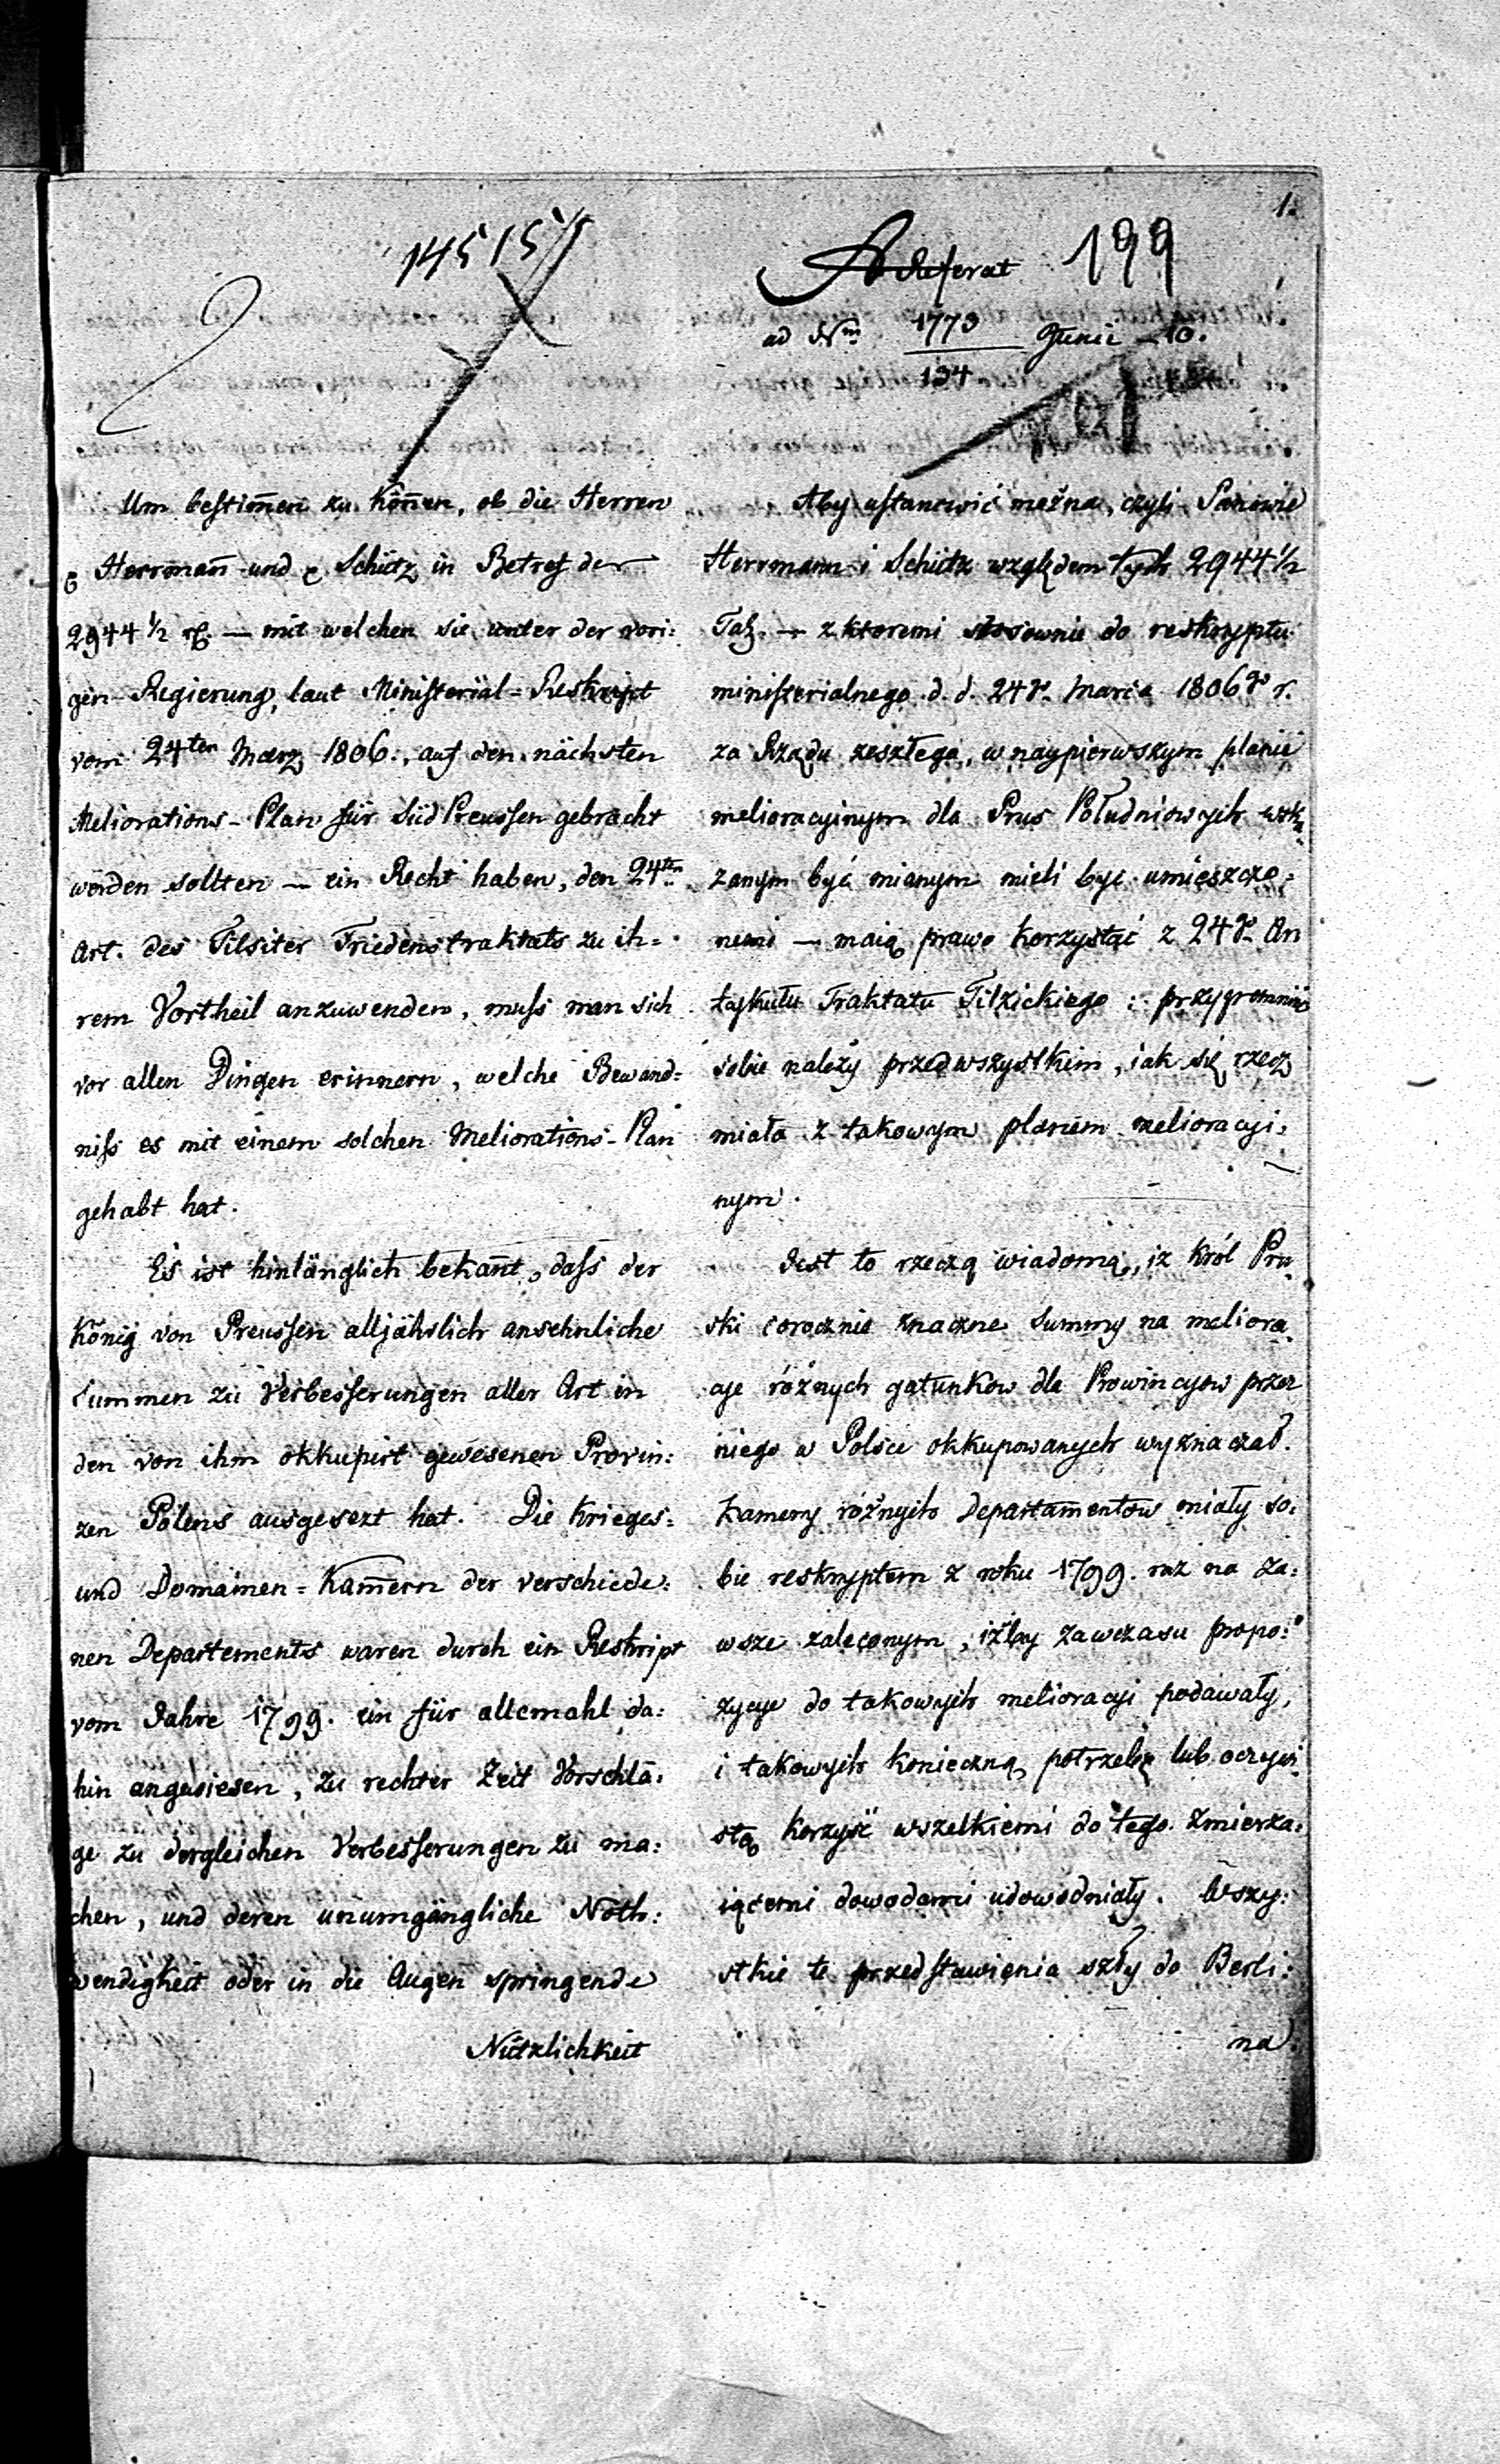 1.
14515
199
Referat
ad Nrm 1773 Junii 10.
134
Um bestim̄en zu kön̄en, ob die Herren
Herrman̄ und Schütz in Betref der
2944 1/2 rf. — mit welchen sie unter der vori:
gen Regierung, laut Ministerial=Reskript
vom 24ten Maerz 1806., auf den nächsten
Meliorations-Plan für Süd Preussen gebracht
werden sollten — ein Recht haben, den 24ten
Art. des Tilsiter Friedenstraktats zu ih=
rem Vortheil anzuwenden, muss man sich
vor allen Dingen erinnern, welche Bewand=
niss es mit einem solchen Meliorations-Plan
gehabt hat.
Es ist hinlänglich bekan̄t, dass der
König von Preussen alljährlich ansehnliche
Summen zu Verbesserungen aller Art in
den von ihm okkupirt gewesenen Provin:
zen Polens ausgesezt hat. Die Krieges=
und Domainen=Kam̄ern der verschiede:
nen Departements waren durch ein Reskript
vom Jahre 1799. ein für allemahl da:
hin angewiesen, zu rechter Zeit Vorschlä:
ge zu dergleichen Verbesserungen zu ma:
chen, und deren unumgängliche Noth:
wendigkeit oder in die Augen springende
Nützlichkeit
Aby ustanowić można, czyli Panowie
Herrmann i Schütz względem tych 2944 1/2
Tal. — z ktoremi stosownie do reskryptu
ministerialnego d. d. 24go Marca 1806go r.
za Rządu zeszłego, w naypierwszym planie
melioracyinym dla Prus Południowych wzka
zanym być mianym mieli być umieszczo:
nemi — maią prawo korzystać z 24go Ar
tykułu Traktatu Tilzickiego: przypomnieć
sobie należy przedwszystkim, iak się rzecz
miała z takowym planem melioracyi:
nym.
Jest to rzeczą wiadomą, iz Król Pru
ski corocznie znaczne Summy na meliora
cye róznych gatunkow dla Prowincyow przez
niego w Polsce okkupowanych wyznaczał.
Kamery róznych Departamentow miały so:
bie reskryptem z roku 1799. raz na za:
wsze zaleconym, iżby zawczasu propo:
zycye do takowych melioracyi podawały,
i takowych konieczną potrzebę lub oczywi
stą korzyść wszelkiemi do tego zmierza:
iącemi dowodami udowodniały. Wszy:
stkie te przedstawienia szły do Berli:
na